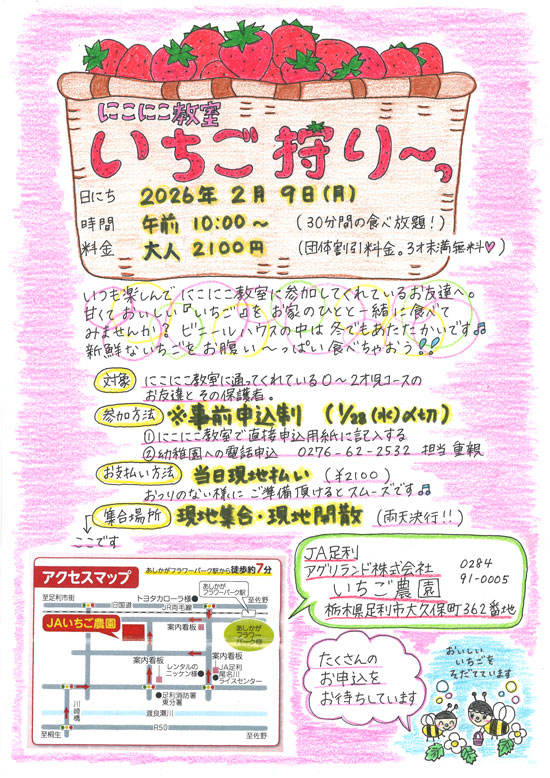 にこにこ教室
いちご狩り〜っ
日にち 2026年 2月 9日(月)
時間 午前 10:00〜 (30分間の食べ放題!)
料金 大人 2100円 (団体割引料金。3才未満無料♡)
いつも楽しんで にこにこ教室に参加してくれているお友達へ。
甘くて おいしい『いちご』を お家のひとと一緒に食べて
みませんか? ビニールハウスの中は 冬でもあたたかいです♫
新鮮ないちごを お腹い〜っぱい食べちゃおう!!
対象 にこにこ教室に通ってくれている0〜2才児コースの
お友達と その保護者。
参加方法 ※事前申込制 (1/28(水)〆切)
①にこにこ教室で直接申込用紙に記入する
②幼稚園への電話申込 0276-62-2532 担当 重親
お支払い方法 当日現地払い (¥2100)
おつりのない様に ご準備頂けるとスムーズです♫
集合場所 現地集合・現地開散 (雨天決行!!)
ここです
アクセスマップ
あしかがフラワーパーク駅から徒歩約7分
至足利市街
旧国道
トヨタカローラ様
JR両毛線
あしかが
フラワーパーク駅
至佐野
JAいちご農園
案内看板
あしかが
フラワー
パーク様
案内看板
案内看板
レンタルの
ニッケン様
JA足利
尾名川
ライスセンター
足利消防署
東分署
川崎橋
渡良瀬川
至桐生
R50
至佐野
JA足利
アグリランド株式会社
いちご農園
0284
91-0005
栃木県足利市大久保町362番地
たくさんの
お申込を
お待ちしています
おいしい
いちごを
そだてています